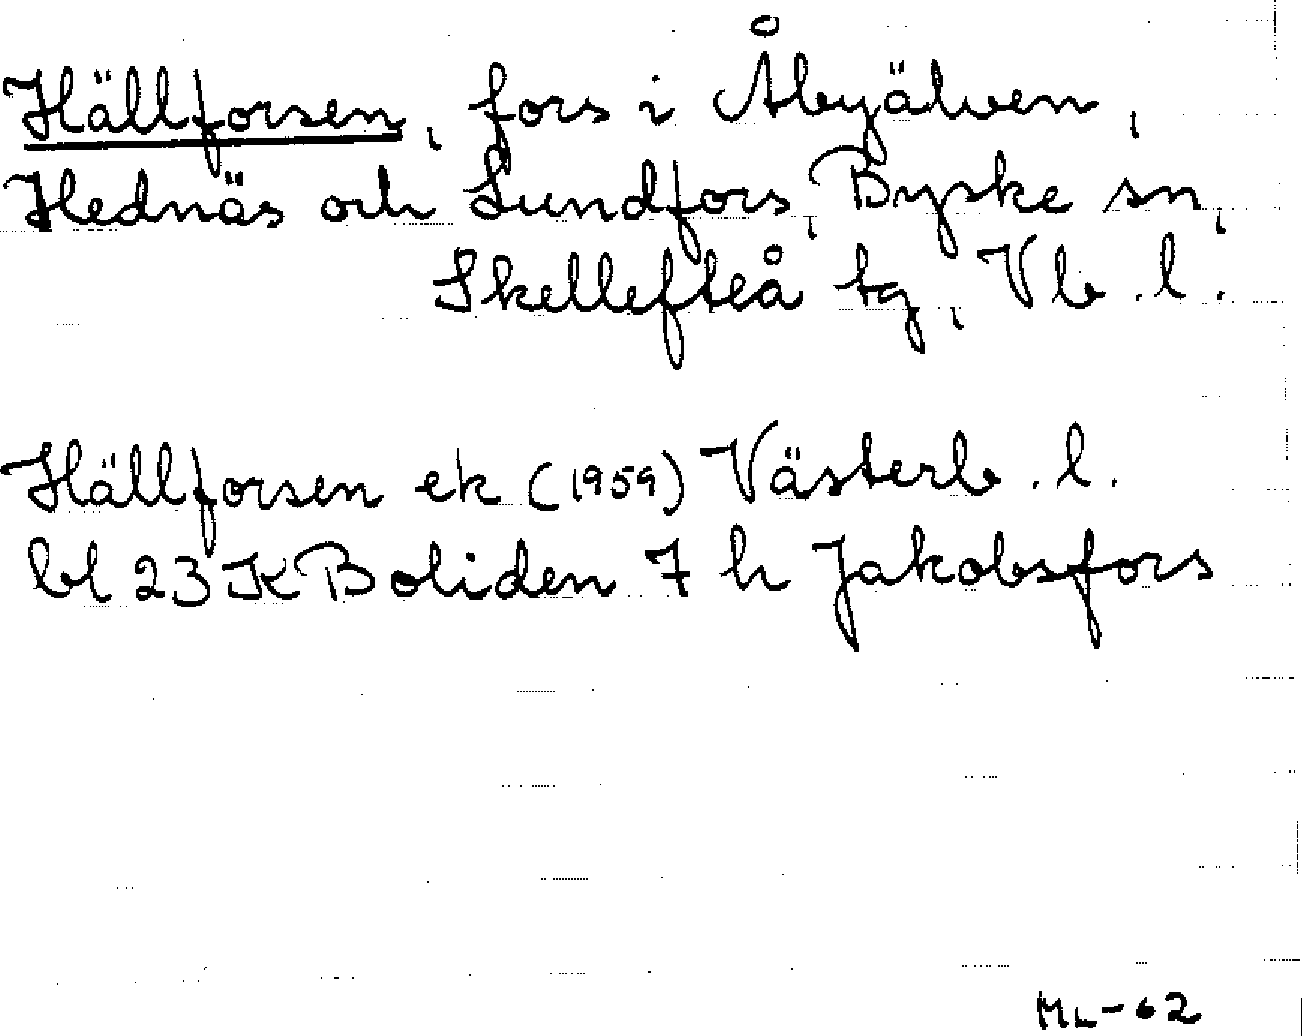 Hällforsen, fors i Åbyälven,
Hednäs och Lundfors, Byske sn,
Skellefteå tg, Vb. l.
Hällforsen ek (1959) Västerb. l.
bl 23 K Boliden 7 h Jakobsfors
ML-62